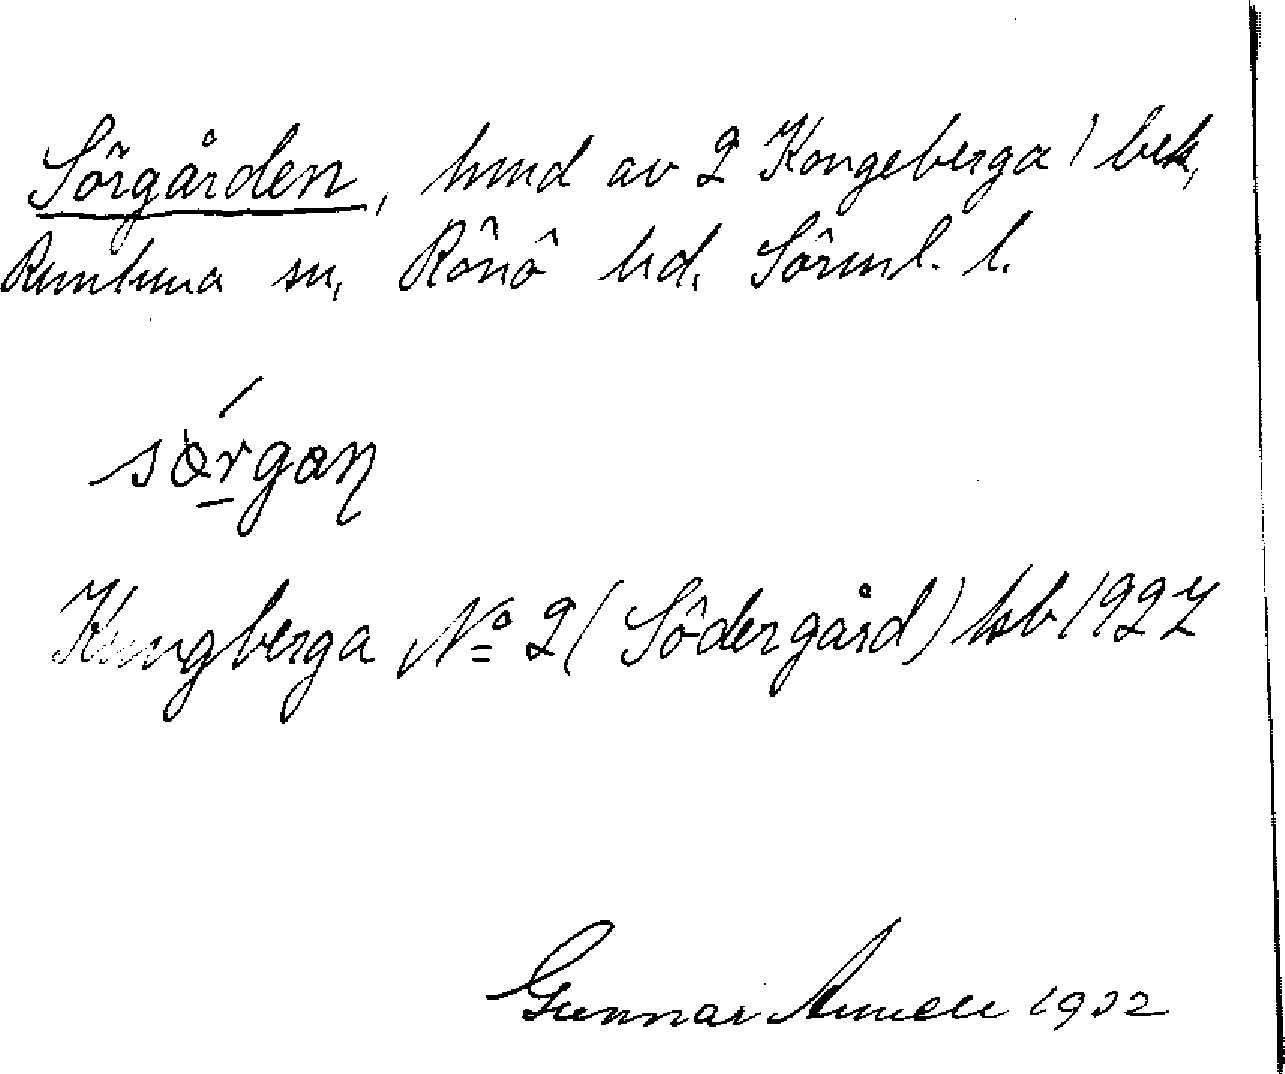 Sörgården, hmd av 2 Kongeberga 1 bek,
Runtuna sn, Rönö hd. Sörml. l.
sörgan
Kungberga No 2 (Södergård) hsb 1927
Gunnar 1932